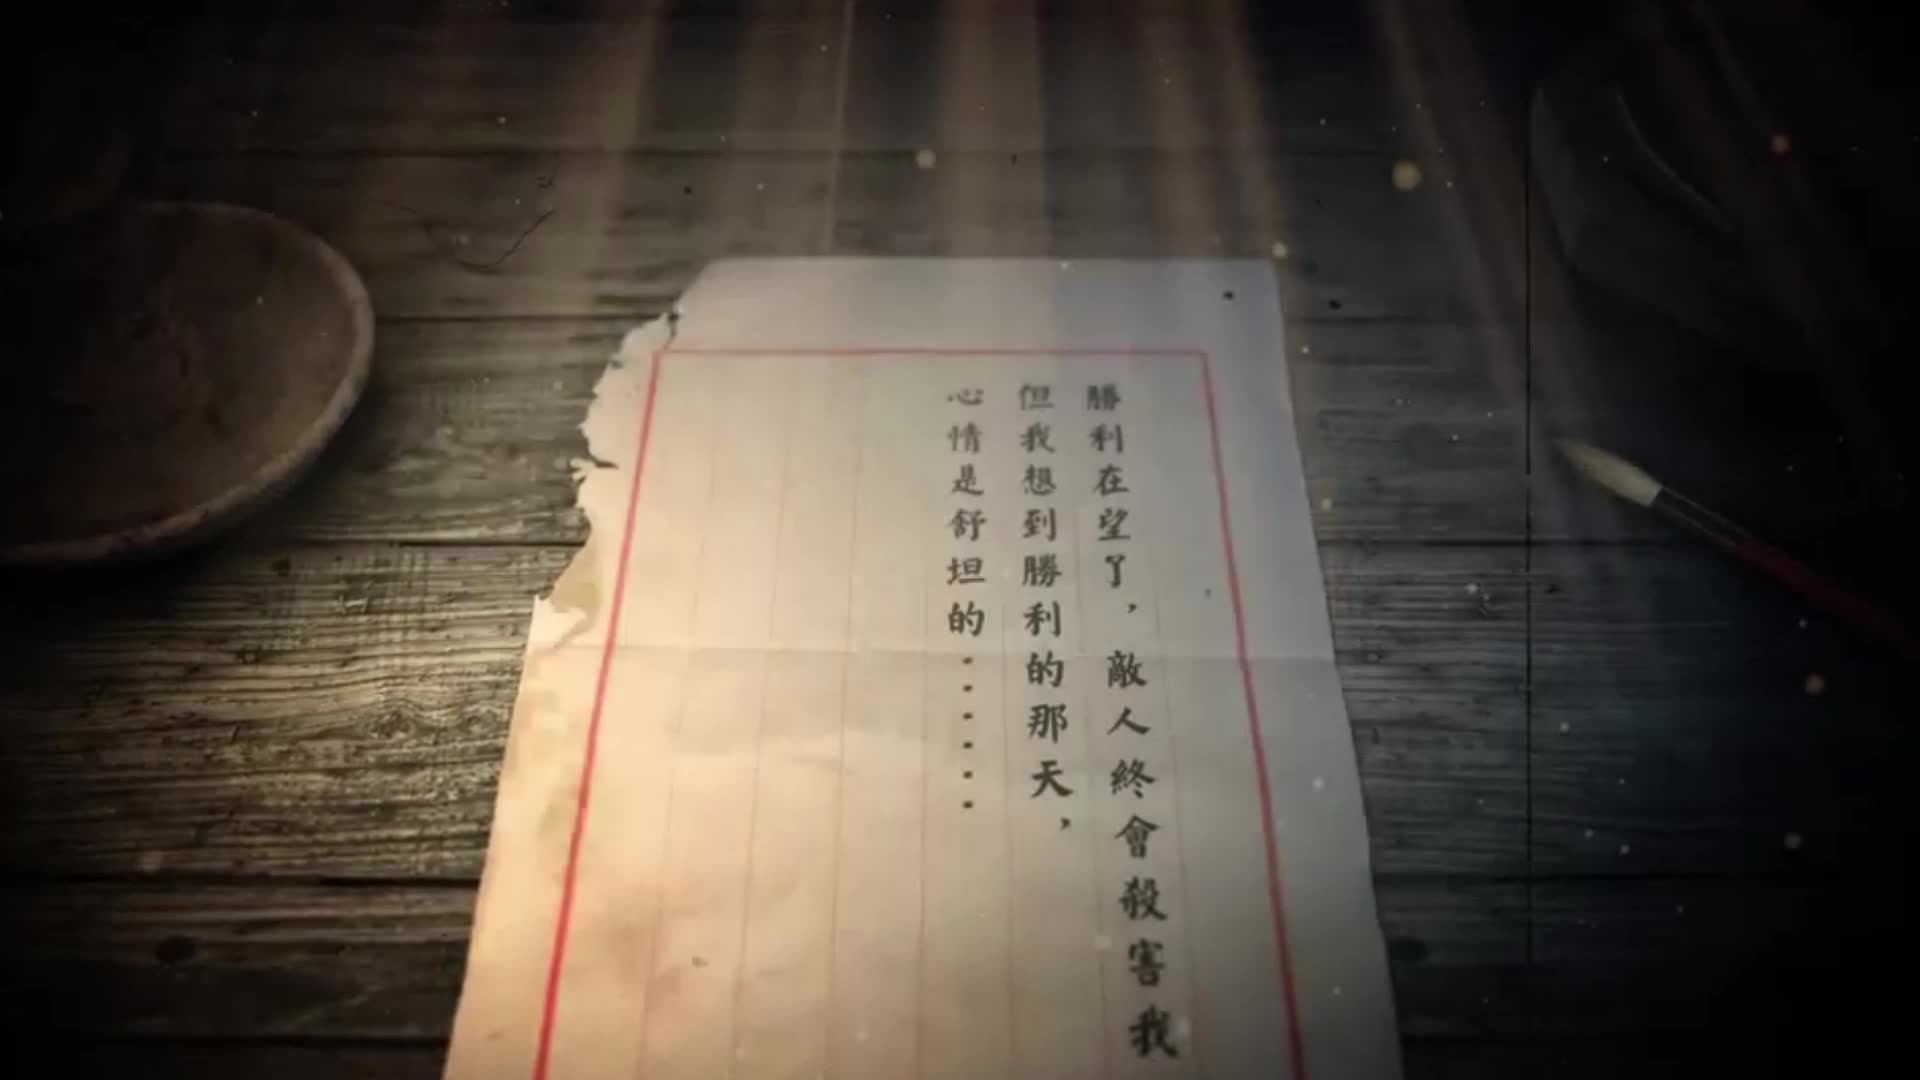 勝利在望了，敵人終會殺害我
但我想到勝利的那天，
心情是舒坦的······